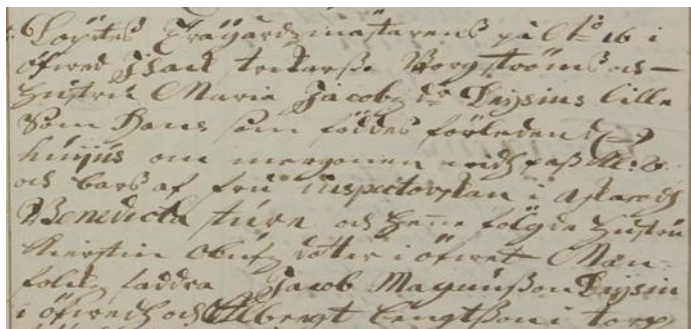 6 Löptes Trägårdzmästarens på No 16 i
öfwed Isack Borgströms och
hustru Maria Jacobz dr Drysius lille
Son Hans som föddes förleden d 2
hujus om morgonen widh paß kl: 3
och bars af fru inspectorskan i
Benedicta sture och henne följde hustru
Kierstin Olufz dotter i öfwet Man
folk faddra Jacob Magnußon Drysin
i öfwedh och Bengtßon i torp